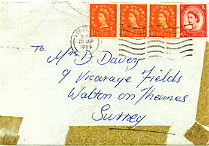 To,
Mr D. Davey
9 Vicarage Fields
Walton on Thames
Surrey